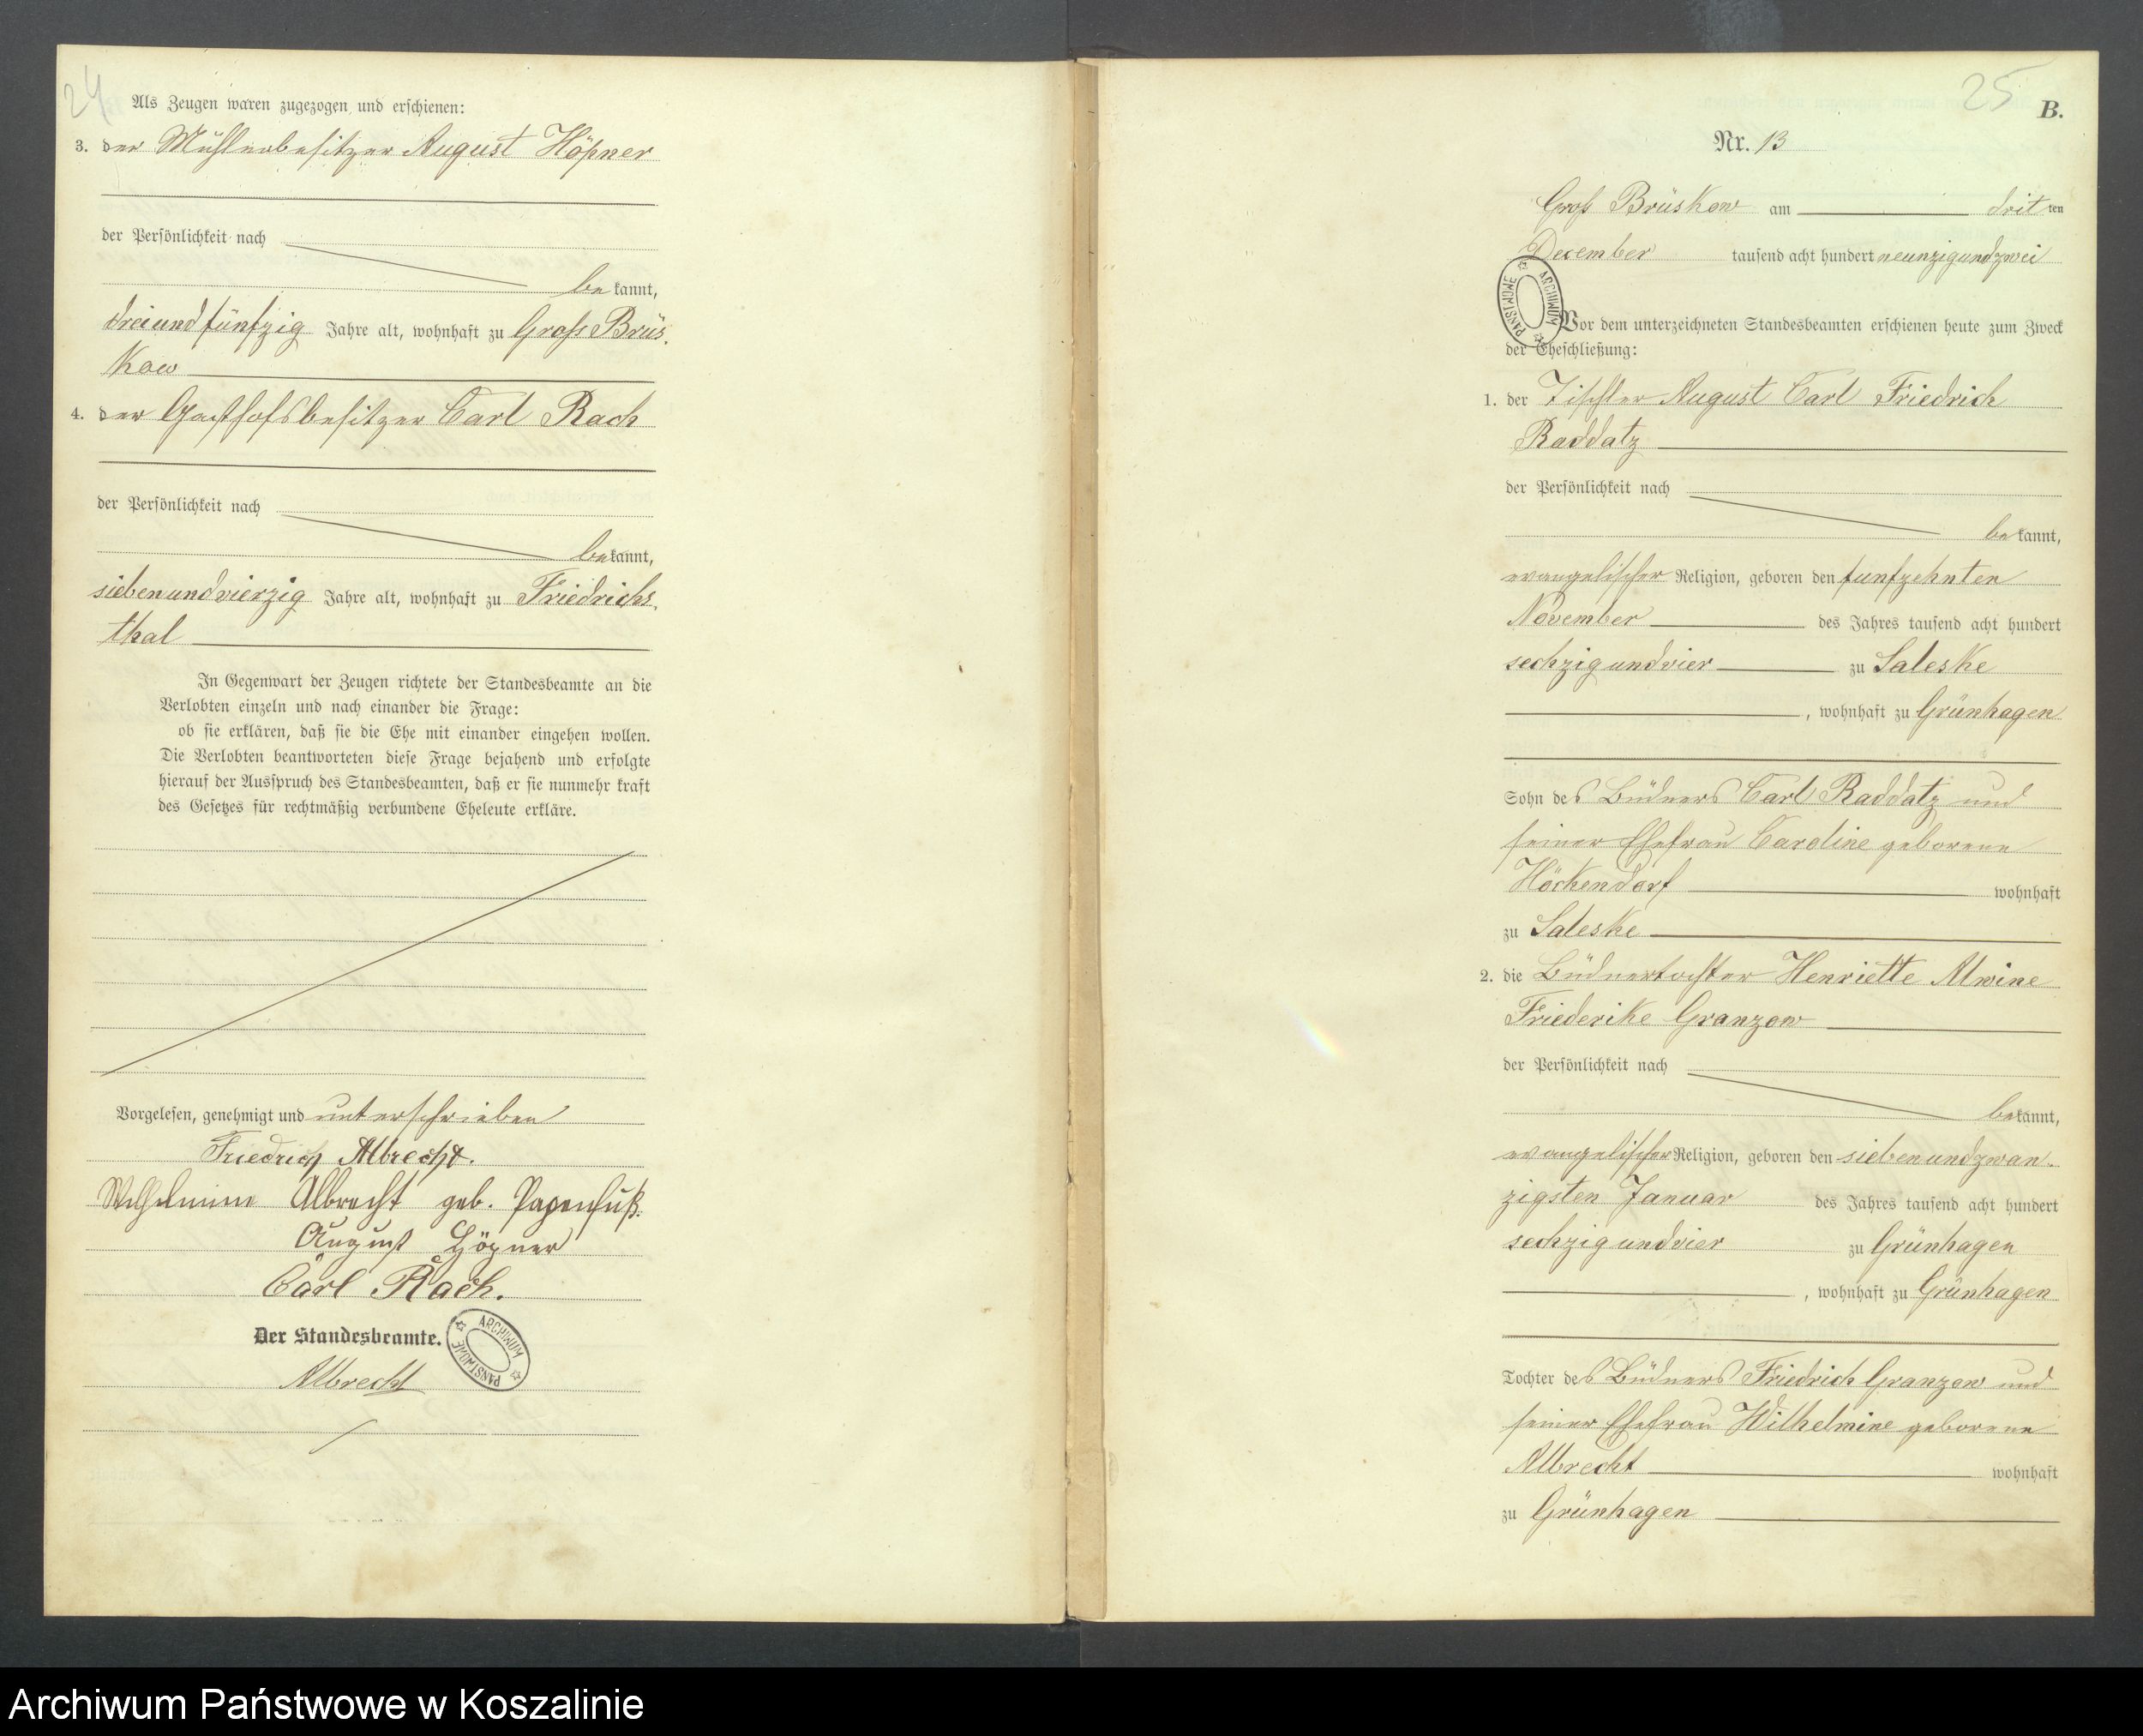 24
Als Zeugen waren zugezogen und erschienen:
3. der Mühlenbesitzer August Höpner
der Persönlichkeit nach
bekannt,
dreiundfünfzig Jahre alt, wohnhaft zu Groß Brüs-
kow
4. der Gasthofsbesitzer Carl Rach
der Persönlichkeit nach
bekannt,
siebenundvierzig Jahre alt, wohnhaft zu Friedrichs-
thal
In Gegenwart der Zeugen richtete der Standesbeamte an die
Verlobten einzeln und nach einander die Frage:
ob sie erklären, daß sie die Ehe mit einander eingehen wollen.
Die Verlobten beantworteten diese Frage bejahend und erfolgte
hierauf der Ausspruch des Standesbeamten, daß er sie nunmehr kraft
des Gesetzes für rechtmäßig verbundene Eheleute erkläre.
Vorgelesen, genehmigt und unterschrieben
Friedrich Albrecht.
Wilhelmine Albrecht geb. Papenfuß.
August Höpner
Carl Rach.
Der Standesbeamte.
ARCHIWUM PAŃSTWOWE
Albrecht
25
B.
Nr. 13
Groß Brüskow am dritten
December tausend acht hundert neunzigundzwei
ARCHIWUM PAŃSTWOWE
Vor dem unterzeichneten Standesbeamten erschienen heute zum Zweck
der Eheschließung:
1. der Tischler August Carl Friedrich
Raddatz
der Persönlichkeit nach
bekannt,
evangelischer Religion, geboren den funfzehnten
November des Jahres tausend acht hundert
sechzigundvier zu Saleske
, wohnhaft zu Grünhagen
Sohn des Büdners Carl Raddatz und
seiner Ehefrau Caroline geborene
Höckendorf wohnhaft
zu Saleske
2. die Büdnertochter Henriette Alwine
Friederike Granzow
der Persönlichkeit nach
bekannt,
evangelischer Religion, geboren den siebenundzwan-
zigsten Januar des Jahres tausend acht hundert
sechzigundvier zu Grünhagen
, wohnhaft zu Grünhagen
Tochter des Büdners Friedrich Granzow und
seiner Ehefrau Wilhelmine geborene
Albrecht wohnhaft
zu Grünhagen
Archiwum Państwowe w Koszalinie